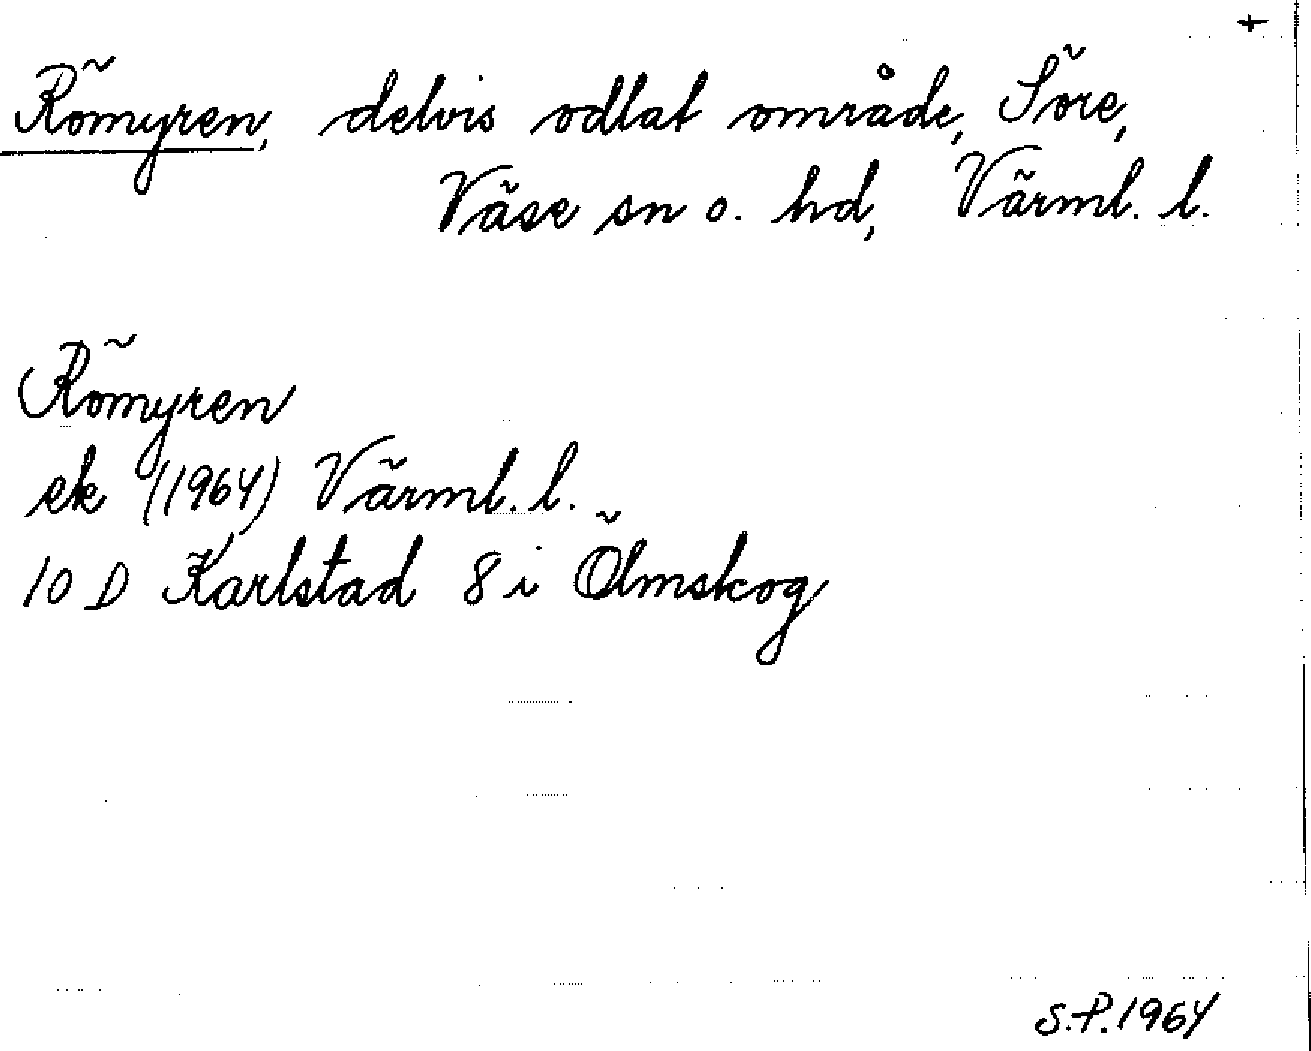 +
Römyren, delvis odlat område, Söre,
Väse sn o. hd, Värml. l.
Römyren
ek (1964) Värml. l.
10 D Karlstad 8 i Ölmskog
S.P. 1964